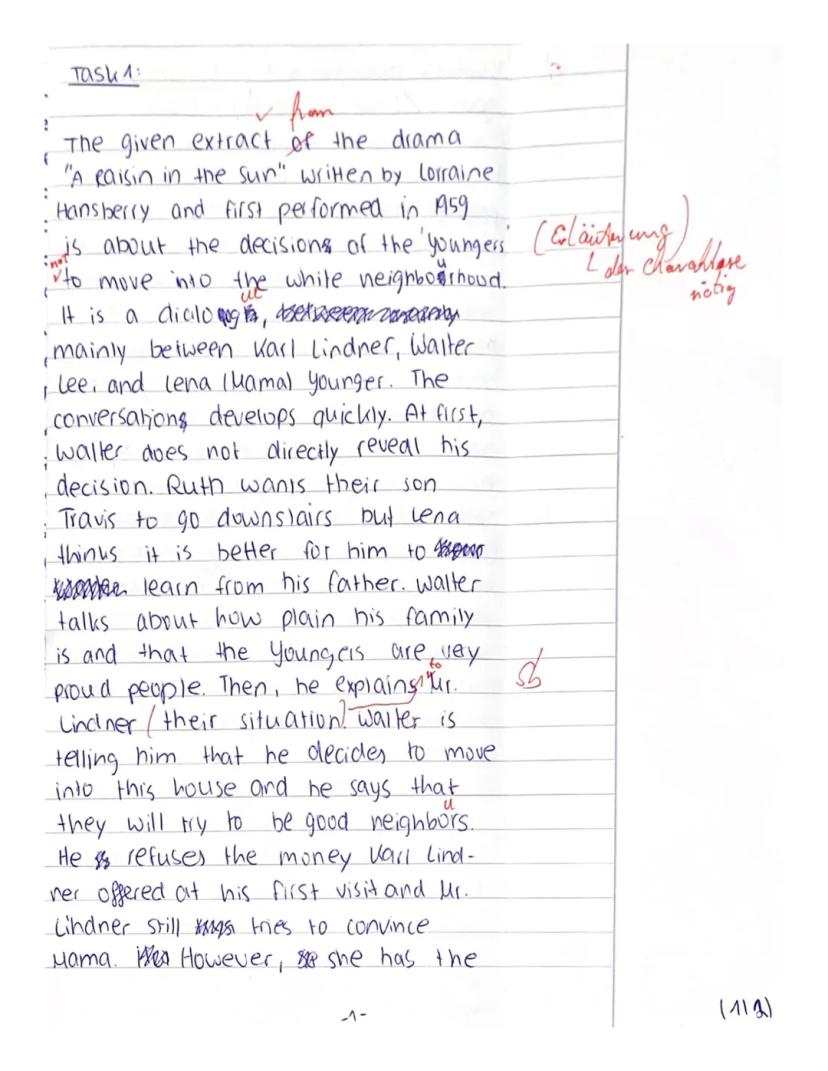 Task 1:
✓ from
The given extract of the drama
"A Raisin in the Sun" written by Lorraine
Hansberry and first performed in 1959
is about the decisions of the 'Youngers' (Erläuterung)
not ✓ to move into the white neighbourhood. der Charaktere
It is a dialogue, nötig
mainly between Karl Lindner, Walter
Lee, and Lena (Mama) Younger. The
conversations develops quickly. At first,
Walter does not directly reveal his
decision. Ruth wants their son
Travis to go downstairs but Lena
thinks it is better for him to
learn from his father. Walter
talks about how plain his family
is and that the Youngers are very
to
proud people. Then, he explains Mr. Sb
Lindner (their situation). Walter is
telling him that he decides to move
into this house and he says that
u
they will try to be good neighbors.
He refuses the money Karl Lind-
ner offered at his first visit and Mr.
Lindner still tries to convince
Mama. However, she has the
-1-